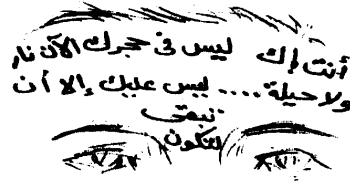 أنت إك ليس فى حجرك الآن نار
ولا حيلة .... ليس عليك إلا أن
تبقى
لتكون